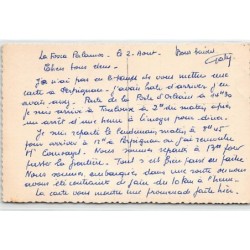 La Fosca Palamos. le 2. Aout.
Bons baisers
Gaby.
Chers tous deux.
J'ai pas eu le temps de vous mettre une
carte à Perpignan. J'avais hâte d'arriver. J'en
avais assez. Partie de la Porte d'Orléans à
je suis arrivée à Toulouse à 2h du matin après
un arrêt d'une heure à Limoges pour diner.
Je suis reparti le lendemain matin à 7h45
pour arriver à 12h à Perpignan ou j'ai rencontré
Mr. Nous sommes repartis à 13h pour
passer la frontière. Tout s'est bien passé en
Nous sommes dans une route ou nous
avons été contraints de faire du 10 km à l'heure.
La carte vous montre une promenade faite hier.